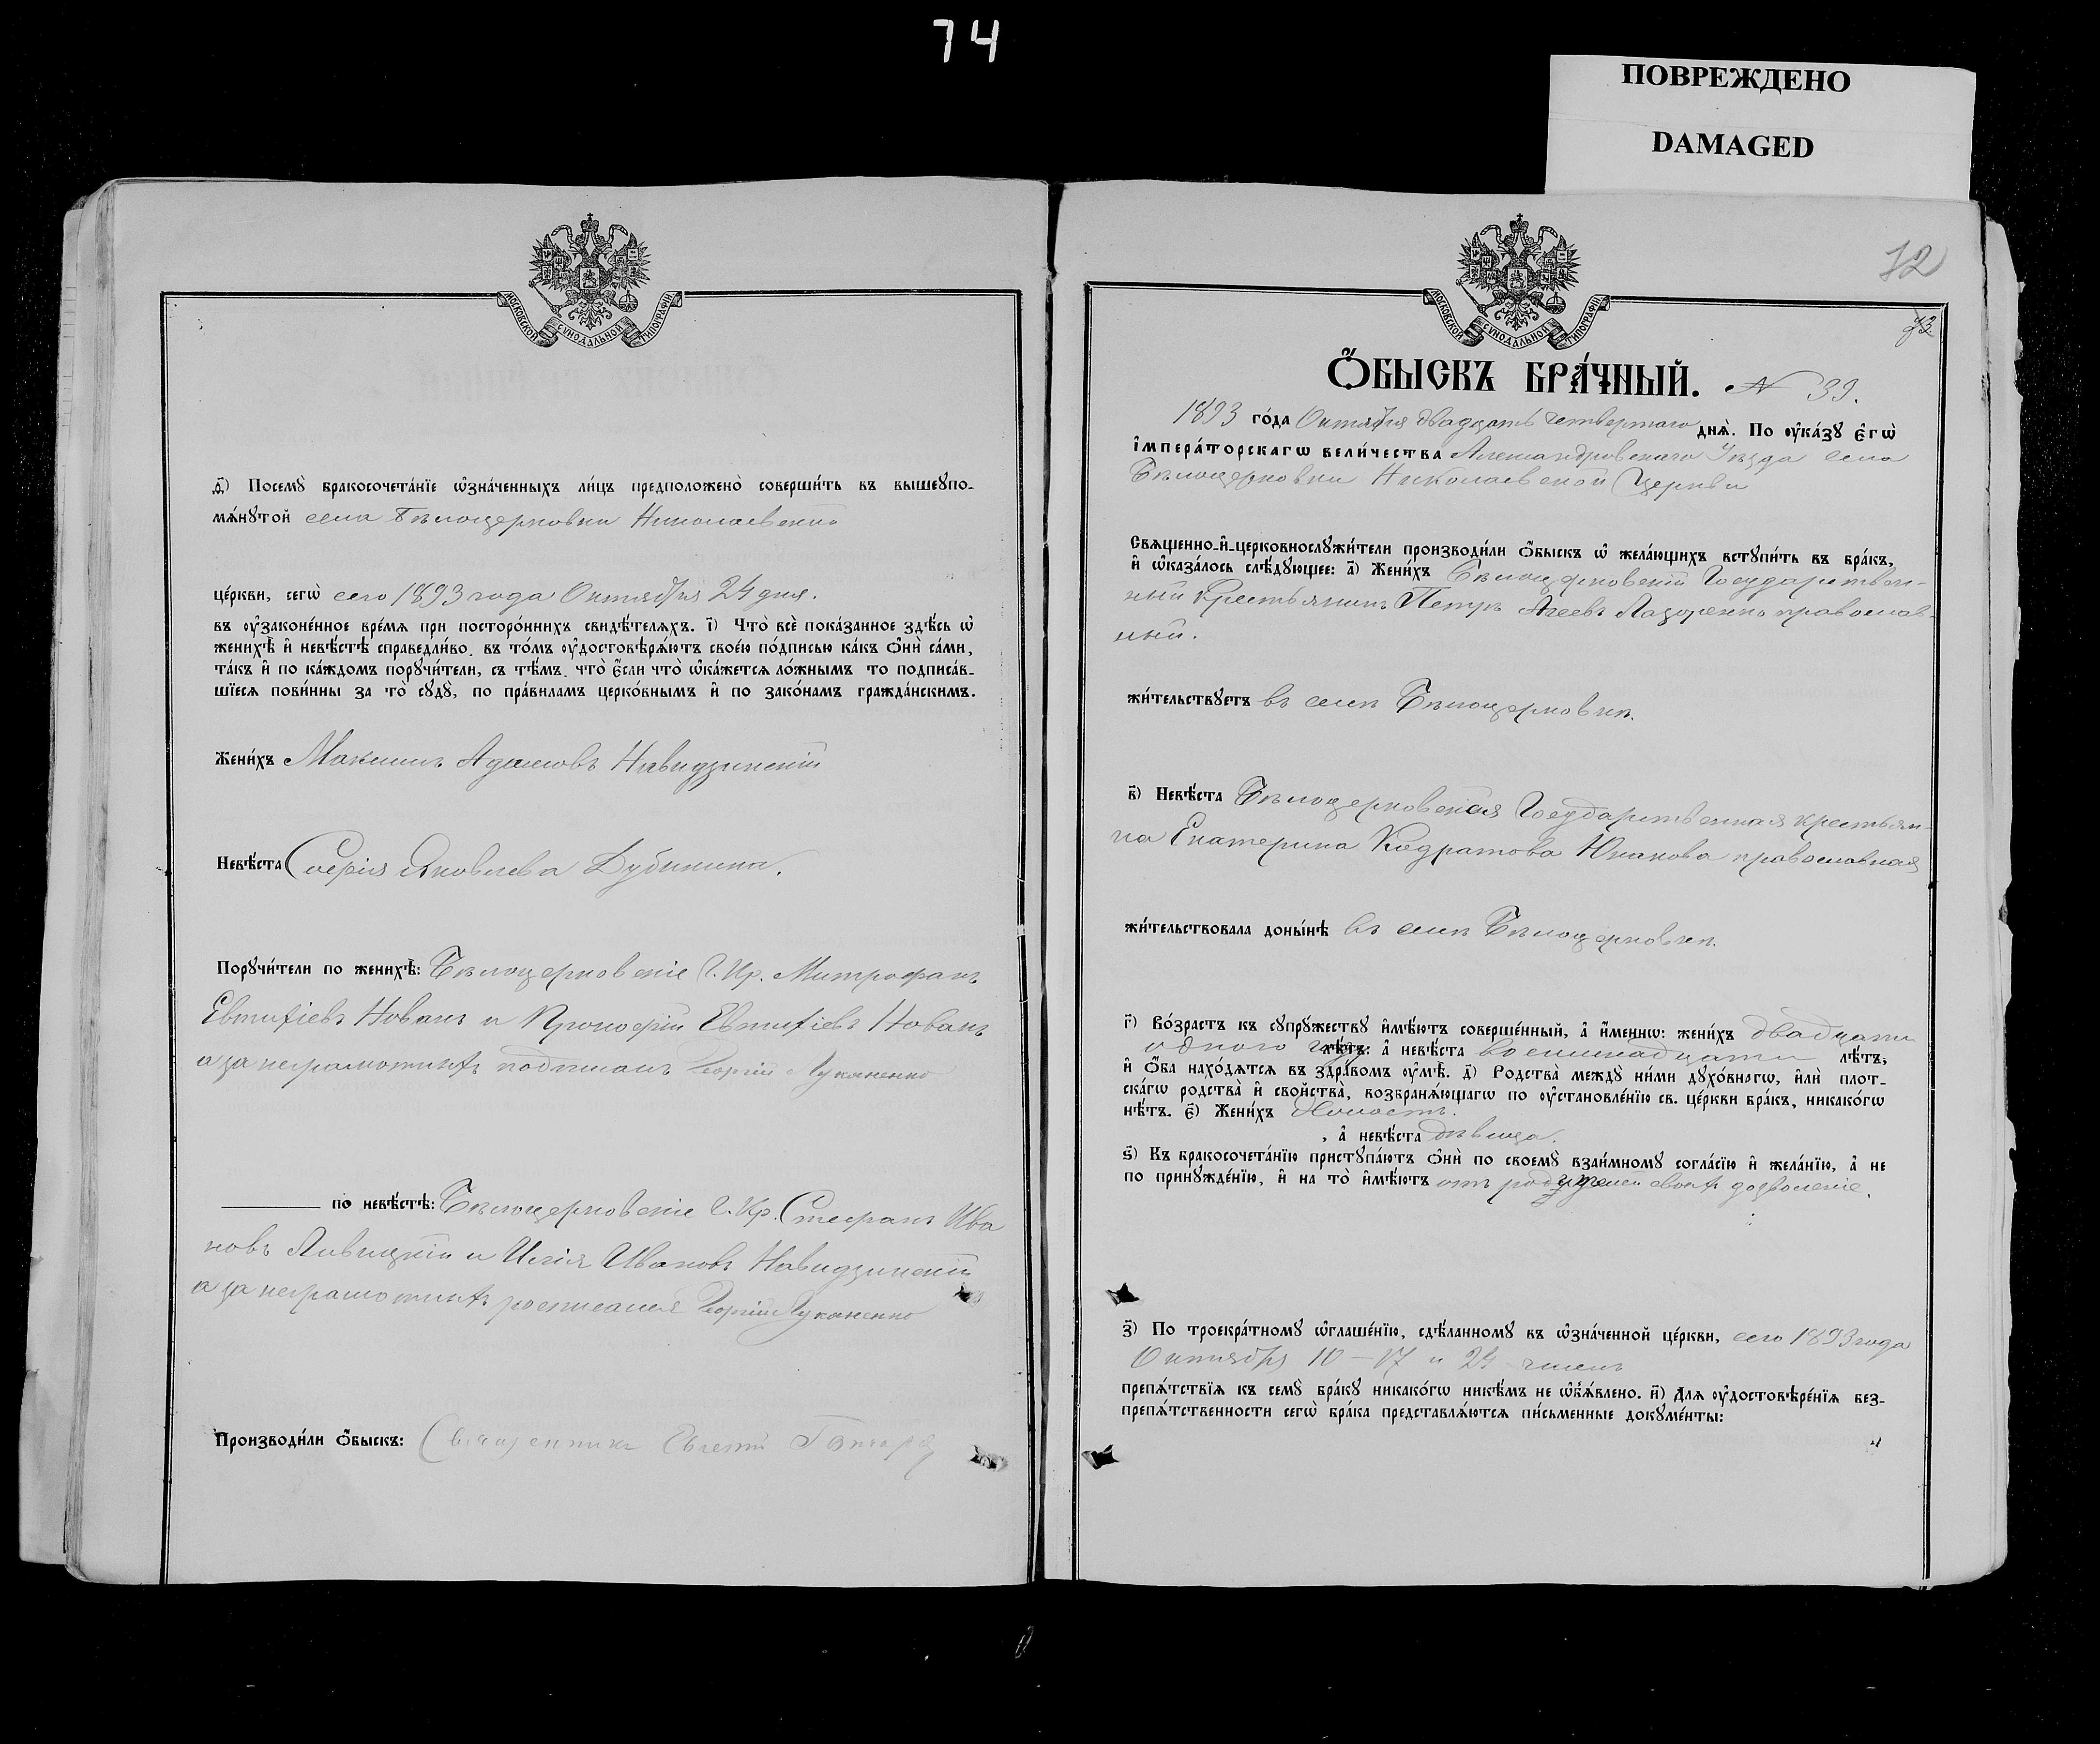 74
ПОВРЕЖДЕНО
DAMAGED
МОСКОВСКОЙ СѴНОДАЛЬНОЙ ТИПОГРАФІИ
д҃) Посемꙋ̀ бракосочета́нїе ѡ҆зна́ченныхъ ли́цъ предположено̀ соверши́ть въ вышеꙋпо-
мѧ́нꙋтой села Бѣлоцерковки Николаевской
це́ркви, сегѡ̀ сего 1893 года Октября 24 дня.
въ ᲂу҆законе́нное вре́мѧ при посторо́ннихъ свидѣ́телѧхъ. і҃) Что̀ всѐ пока́занное здѣ́сь ѡ҆
женихѣ̀ и҆ невѣ́стѣ справедли́во, въ то́мъ ᲂу҆достовѣрѧ́ютъ свое́ю по́дписью ка́къ ѻ҆нѝ са́ми,
та́къ и҆ по ка́ждомъ порꙋчи́тели, съ тѣ́мъ, что̀ є҆́сли что̀ ѡ҆ка́жетсѧ ло́жнымъ то подписа́в-
шїесѧ пови́нны за то̀ сꙋдꙋ̀, по пра́виламъ церко́внымъ и҆ по зако́намъ гражда́нскимъ.
Жени́хъ Максимъ Адамовъ Навидзинскій
Невѣ́ста Софія Яковлева Дубинина.
Порꙋчи́тели по женихѣ̀: Бѣлоцерковскіе Г. Кр. Митрофанъ
Евтихіевъ Нованъ и Прокофій Евтихіевъ Нованъ
а за неграмотныхъ подписалъ Георгій Лукяненко
по невѣ́стѣ: Бѣлоцерковскіе Г. Кр. Стефанъ Ива
новъ Ливицкій и Илія Ивановъ Навидзинскій
а за неграмотныхъ росписался Георгій Лукяненко
Производи́ли ѻ҆́быскъ: Священникъ Евгеній
МОСКОВСКОЙ СѴНОДАЛЬНОЙ ТИПОГРАФІИ
72
73
Ѻ҆́БЫСКЪ БРА́ЧНЫЙ. № 39.
1893 го́да Октября двадцать четвертаго днѧ̀. По ᲂу҆ка́зꙋ є҆гѡ̀
і҆мпера́торскагѡ вели́чества Александровскаго Уѣзда села
Бѣлоцерковки Николаевской Церкви
Свѧщенно-и҆-церковнослꙋжи́тели производи́ли ѻ҆́быскъ ѡ҆ жела́ющихъ встꙋпи́ть въ бра́къ,
и҆ ѡ҆каза́лось слѣ́дꙋющее: а҃) Жени́хъ Бѣлоцерковскій Государствен-
ный Крестьянинъ Петръ Агеевъ Лазоренко православ-
ный.
жи́тельствꙋетъ въ селѣ Бѣлоцерковкѣ.
в҃) Невѣ́ста Бѣлоцерковская Государственная крестьян-
ка Екатерина Кодратова Юнакова православная
жи́тельствовала доны́нѣ въ селѣ Бѣлоцерковкѣ.
г҃) Во́зрастъ къ сꙋпрꙋ́жествꙋ и҆мѣ́ютъ соверше́нный, а҆ и҆́менно: жени́хъ двадцати
одного году лѣ́тъ: а҆ невѣ́ста восемнадцати лѣ́тъ,
и҆ ѻ҆́ба нахо́дѧтсѧ въ здра́вомъ ᲂу҆мѣ̀. д҃) Родства̀ междꙋ̀ ни́ми дꙋхо́внагѡ, и҆лѝ плот-
ска́гѡ родства̀ и҆ свойства̀, возбранѧ́ющагѡ по ᲂу҆становле́нїю св. це́ркви бра́къ, никако́гѡ
нѣ́тъ. є҃) Жени́хъ Холостъ.
, а҆ невѣ́ста дѣвица.
ѕ҃) Къ бракосочета́нїю пристꙋпа́ютъ ѻ҆нѝ по своемꙋ̀ взаи́мномꙋ согла́сїю и҆ жела́нїю, а҆ не
по принꙋжде́нїю, и҆ на то̀ и҆мѣ́ютъ отъ родителей своихъ дозволеніе.
з҃) По троекра́тномꙋ ѡ҆глаше́нїю, сдѣ́ланномꙋ въ ѡ҆зна́ченной це́ркви, сего 1893 года
Октября 10 — 17 и 24 числъ
препѧ́тствїѧ къ семꙋ̀ бра́кꙋ никако́гѡ никѣ́мъ не ѡ҆б̾ѧ́влено. и҃) Длѧ ᲂу҆достовѣре́нїѧ без-
препѧ́тственности сегѡ̀ бра́ка представлѧ́ютсѧ пи́сьменные докꙋме́нты: